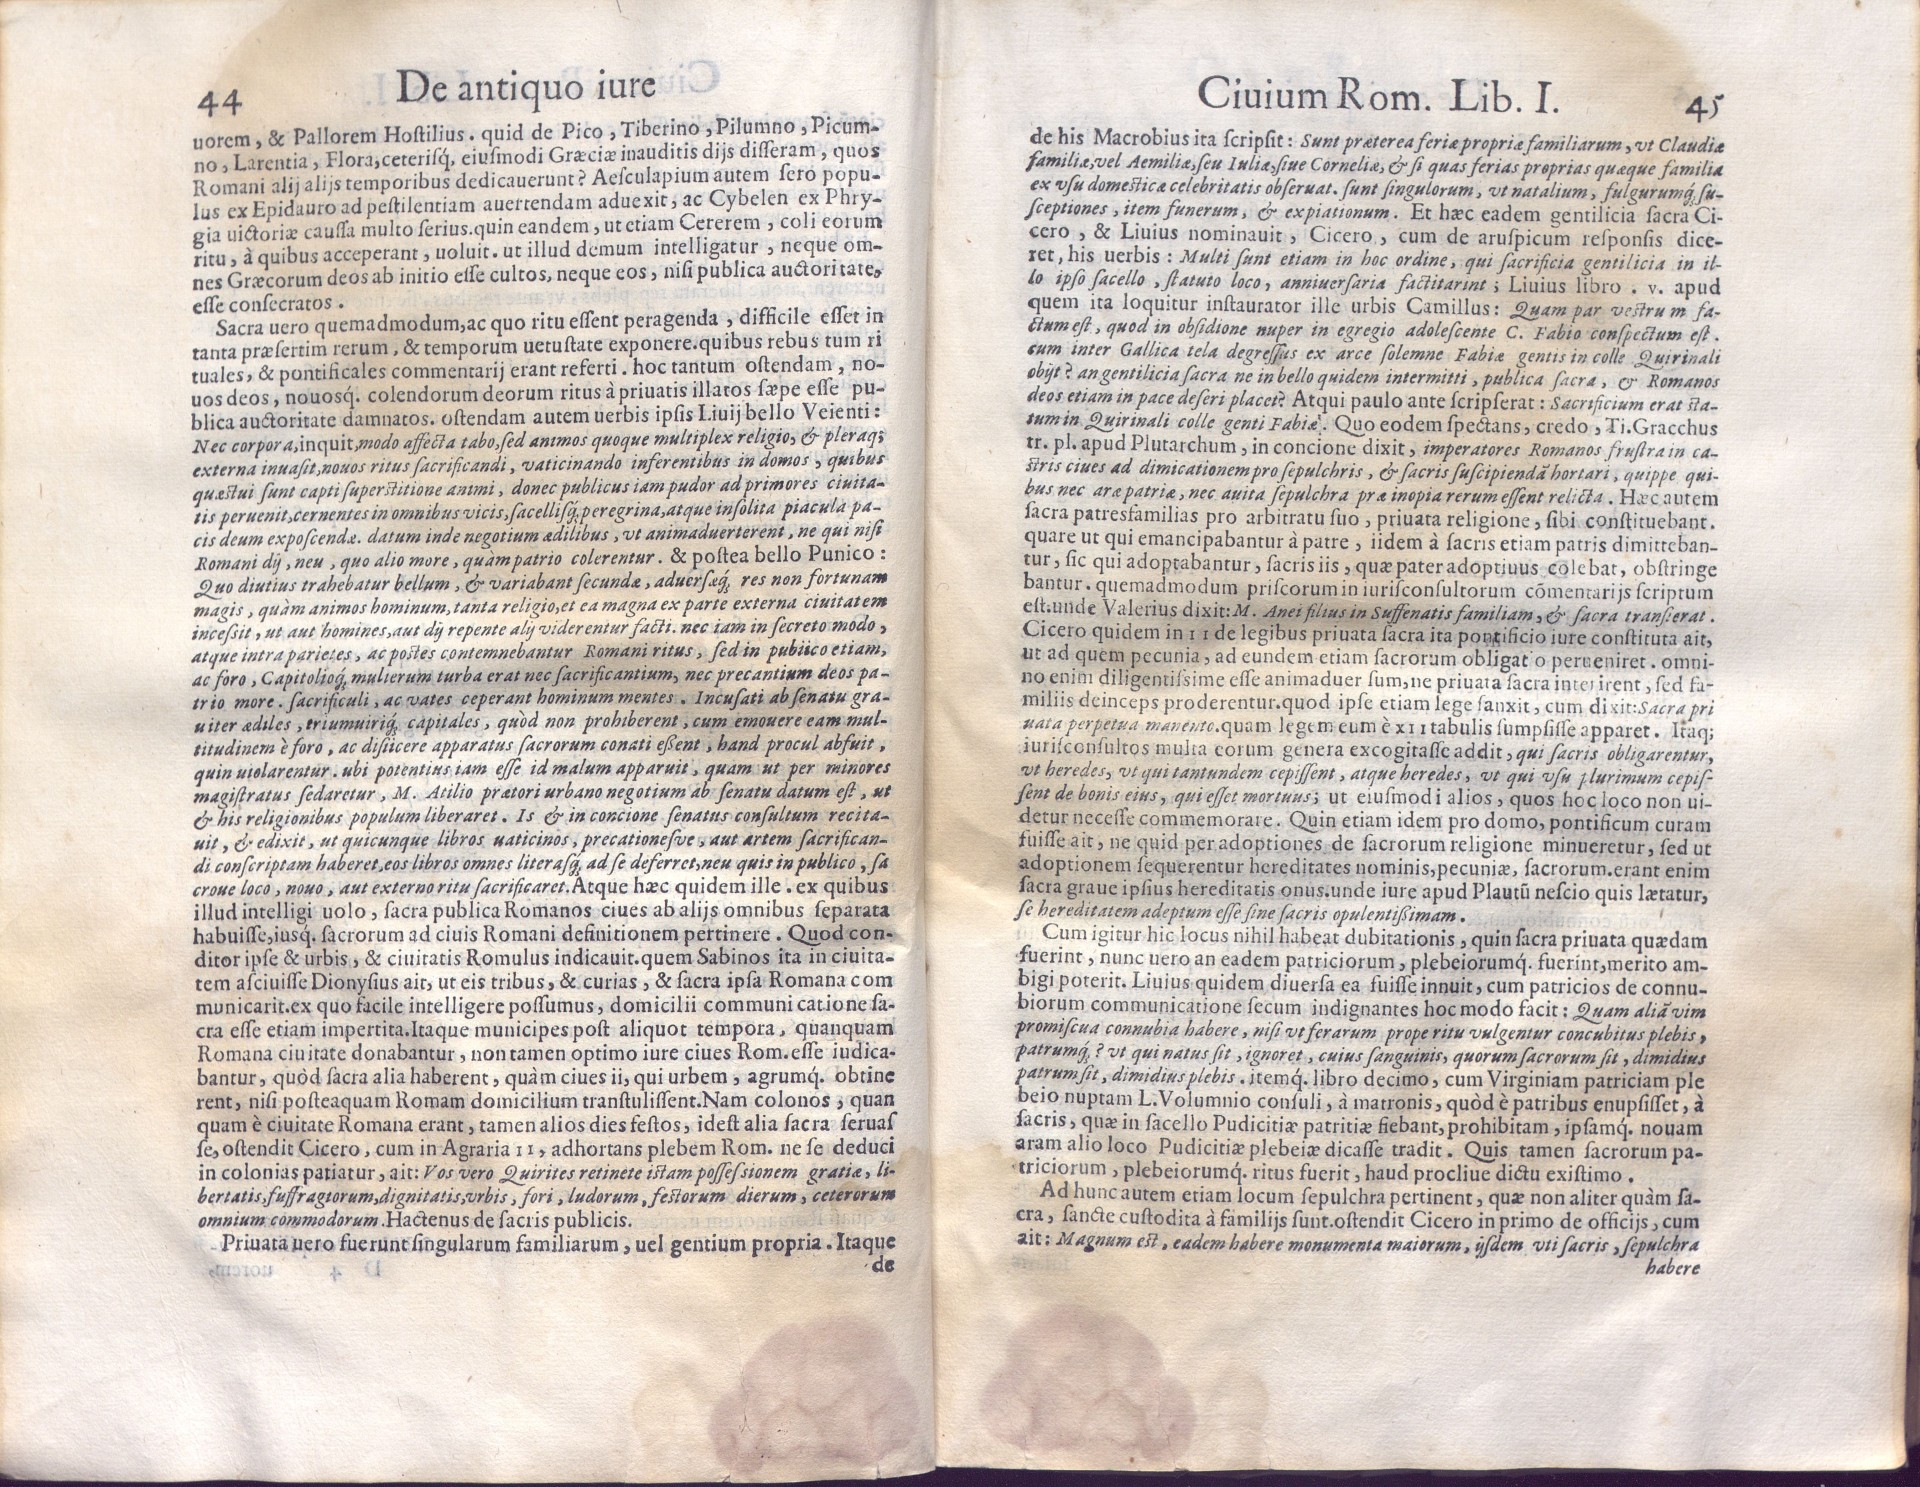 44 De antiquo iure
uorem, & Pallorem Hoſtilius. quid de Pico, Tiberino, Pilumno, Picum-
no, Larentia, Flora, ceteriſq́. eiuſmodi Græciæ inauditis dijs diſſeram, quos
Romani alij alijs temporibus dedicauerunt? Aeſculapium autem ſero popu-
lus ex Epidauro ad peſtilentiam auertendam aduexit, ac Cybelen ex Phry-
gia uictoriæ cauſſa multo ſerius. quin eandem, ut etiam Cererem, coli eorum
ritu, à quibus acceperant, uoluit. ut illud demum intelligatur, neque om-
nes Græcorum deos ab initio eſſe cultos, neque eos, niſi publica auctoritate,
eſſe conſecratos.
Sacra uero quemadmodum, ac quo ritu eſſent peragenda, difficile eſſet in
tanta præſertim rerum, & temporum uetuſtate exponere. quibus rebus tum ri
tuales, & pontificales commentarij erant referti. hoc tantum oſtendam, no-
uos deos, nouosq́. colendorum deorum ritus à priuatis illatos ſæpe eſſe pu-
blica auctoritate damnatos. oſtendam autem uerbis ipſis Liuij bello Veienti:
Nec corpora, inquit, modo affecta tabo, ſed animos quoque multiplex religio, & pleraq;
externa inuaſit, nouos ritus ſacrificandi, vaticinando inferentibus in domos, quibus
quæſtui ſunt capti ſuperſtitione animi, donec publicus iam pudor ad primores ciuita-
tis peruenit, cernentes in omnibus vicis, ſacelliſq́; peregrina, atque inſolita piacula pa-
cis deum expoſcendæ. datum inde negotium ædilibus, vt animaduerterent, ne qui niſi
Romani dij, neu, quo alio more, quàm patrio colerentur. & poſtea bello Punico:
Quo diutius trahebatur bellum, & variabant ſecundæ, aduerſæq́; res non fortunam
magis, quàm animos hominum, tanta religio, et ea magna ex parte externa ciuitatem
inceſsit, ut aut homines, aut dij repente alij viderentur facti. nec iam in ſecreto modo,
atque intra parietes, ac poſtes contemnebantur Romani ritus, ſed in publico etiam,
ac foro, Capitolioq́; mulierum turba erat nec ſacrificantium, nec precantium deos pa-
trio more. ſacrificuli, ac vates ceperant hominum mentes. Incuſati ab ſenatu gra-
uiter ædiles, triumuiriq́; capitales, quòd non prohiberent, cum emouere eam mul-
titudinem è foro, ac diſiicere apparatus ſacrorum conati eßent, haud procul abfuit,
quin uiolarentur. ubi potentius iam eſſe id malum apparuit, quam ut per minores
magiſtratus ſedaretur, M. Atilio prætori urbano negotium ab ſenatu datum eſt, ut
& his religionibus populum liberaret. Is & in concione ſenatus conſultum recita-
uit, & edixit, ut quicunque libros uaticinos, precationeſve, aut artem ſacrifican-
di conſcriptam haberet, eos libros omnes literaſq́; ad ſe deferret, neu quis in publico, ſa
croue loco, nouo, aut externo ritu ſacrificaret. Atque hæc quidem ille. ex quibus
illud intelligi uolo, ſacra publica Romanos ciues ab alijs omnibus ſeparata
habuiſſe, iusq́. ſacrorum ad ciuis Romani definitionem pertinere. Quod con-
ditor ipſe & urbis, & ciuitatis Romulus indicauit. quem Sabinos ita in ciuita-
tem aſciuiſſe Dionyſius ait, ut eis tribus, & curias, & ſacra ipſa Romana com
municarit. ex quo facile intelligere poſſumus, domicilii communicatione ſa-
cra eſſe etiam impertita. Itaque municipes poſt aliquot tempora, quanquam
Romana ciuitate donabantur, non tamen optimo iure ciues Rom. eſſe iudica-
bantur, quòd ſacra alia haberent, quàm ciues ii, qui urbem, agrumq́. obtine
rent, niſi poſteaquam Romam domicilium tranſtuliſſent. Nam colonos, quan
quam è ciuitate Romana erant, tamen alios dies feſtos, ideſt alia ſacra ſeruaſ
ſe, oſtendit Cicero, cum in Agraria II, adhortans plebem Rom. ne ſe deduci
in colonias patiatur, ait: Vos vero Quirites retinete iſtam poſſeſsionem gratiæ, li-
bertatis, ſuffragiorum, dignitatis, vrbis, fori, ludorum, feſtorum dierum, ceterorum
omnium commodorum. Hactenus de ſacris publicis.
Priuata uero fuerunt ſingularum familiarum, uel gentium propria. Itaque
de
Ciuium Rom. Lib. I. 45
de his Macrobius ita ſcripſit: Sunt præterea feriæ propriæ familiarum, vt Claudiæ
familiæ, vel Aemiliæ, ſeu Iuliæ, ſiue Corneliæ, & ſi quas ferias proprias quæque familia
ex vſu domeſticæ celebritatis obſeruat. ſunt ſingulorum, vt natalium, fulgurumq́; ſu-
ſceptiones, item funerum, & expiationum. Et hæc eadem gentilicia ſacra Ci-
cero, & Liuius nominauit, Cicero, cum de aruſpicum reſponſis dice-
ret, his uerbis: Multi ſunt etiam in hoc ordine, qui ſacrificia gentilicia in il-
lo ipſo ſacello, ſtatuto loco, anniuerſaria factitarint; Liuius libro. v. apud
quem ita loquitur inſtaurator ille urbis Camillus: Quam par veſtrum fa-
ctum eſt, quod in obſidione nuper in egregio adoleſcente C. Fabio conſpectum eſt.
cum inter Gallica tela degreſſus ex arce ſolemne Fabiæ gentis in colle Quirinali
obijt? an gentilicia ſacra ne in bello quidem intermitti, publica ſacra, & Romanos
deos etiam in pace deſeri placet? Atqui paulo ante ſcripſerat: Sacrificium erat ſta-
tum in Quirinali colle genti Fabiæ. Quo eodem ſpectans, credo, Ti. Gracchus
tr. pl. apud Plutarchum, in concione dixit, imperatores Romanos fruſtra in ca-
ſtris ciues ad dimicationem pro ſepulchris, & ſacris ſuſcipiendā hortari, quippe qui-
bus nec aræ patriæ, nec auita ſepulchra præ inopia rerum eſſent relicta. Hæc autem
ſacra patresfamilias pro arbitratu ſuo, priuata religione, ſibi conſtituebant.
quare ut qui emancipabantur à patre, iidem à ſacris etiam patris dimitteban-
tur, ſic qui adoptabantur, ſacris iis, quæ pater adoptiuus colebat, obſtringe
bantur. quemadmodum priſcorum in iuriſconſultorum cōmentarijs ſcriptum
eſt. unde Valerius dixit: M. Anei filius in Suffenatis familiam, & ſacra tranſierat.
Cicero quidem in II de legibus priuata ſacra ita pontificio iure conſtituta ait,
ut ad quem pecunia, ad eundem etiam ſacrorum obligatio perueniret. omni-
no enim diligentiſsime eſſe animaduerſum, ne priuata ſacra interirent, ſed fa-
miliis deinceps proderentur. quod ipſe etiam lege ſanxit, cum dixit: Sacra pri
uata perpetua manento. quam legem eum è XII tabulis ſumpſiſſe apparet. Itaq;
iuriſconſultos multa eorum genera excogitaſſe addit, qui ſacris obligarentur,
vt heredes, vt qui tantundem cepiſſent, atque heredes, vt qui vſu plurimum cepiſ-
ſent de bonis eius, qui eſſet mortuus; ut eiuſmodi alios, quos hoc loco non ui-
detur neceſſe commemorare. Quin etiam idem pro domo, pontificum curam
fuiſſe ait, ne quid per adoptiones de ſacrorum religione minueretur, ſed ut
adoptionem ſequerentur hereditates nominis, pecuniæ, ſacrorum. erant enim
ſacra graue ipſius hereditatis onus. unde iure apud Plautū neſcio quis lætatur,
ſe hereditatem adeptum eſſe ſine ſacris opulentißimam.
Cum igitur hic locus nihil habeat dubitationis, quin ſacra priuata quædam
fuerint, nunc uero an eadem patriciorum, plebeiorumq́. fuerint, merito am-
bigi poterit. Liuius quidem diuerſa ea fuiſſe innuit, cum patricios de connu-
biorum communicatione ſecum indignantes hoc modo facit: Quam aliā vim
promiſcua connubia habere, niſi vt ferarum prope ritu vulgentur concubitus plebis,
patrumq́;? vt qui natus ſit, ignoret, cuius ſanguinis, quorum ſacrorum ſit, dimidius
patrum ſit, dimidius plebis. itemq́. libro decimo, cum Virginiam patriciam ple
beio nuptam L. Volumnio conſuli, à matronis, quòd è patribus enupſiſſet, à
ſacris, quæ in ſacello Pudicitiæ patritiæ fiebant, prohibitam, ipſamq́. nouam
aram alio loco Pudicitiæ plebeiæ dicaſſe tradit. Quis tamen ſacrorum pa-
triciorum, plebeiorumq́. ritus fuerit, haud procliue dictu exiſtimo.
Ad hunc autem etiam locum ſepulchra pertinent, quæ non aliter quàm ſa-
cra, ſancte cuſtodita à familijs ſunt. oſtendit Cicero in primo de officijs, cum
ait: Magnum eſt, eadem habere monumenta maiorum, ijſdem vti ſacris, ſepulchra
habere